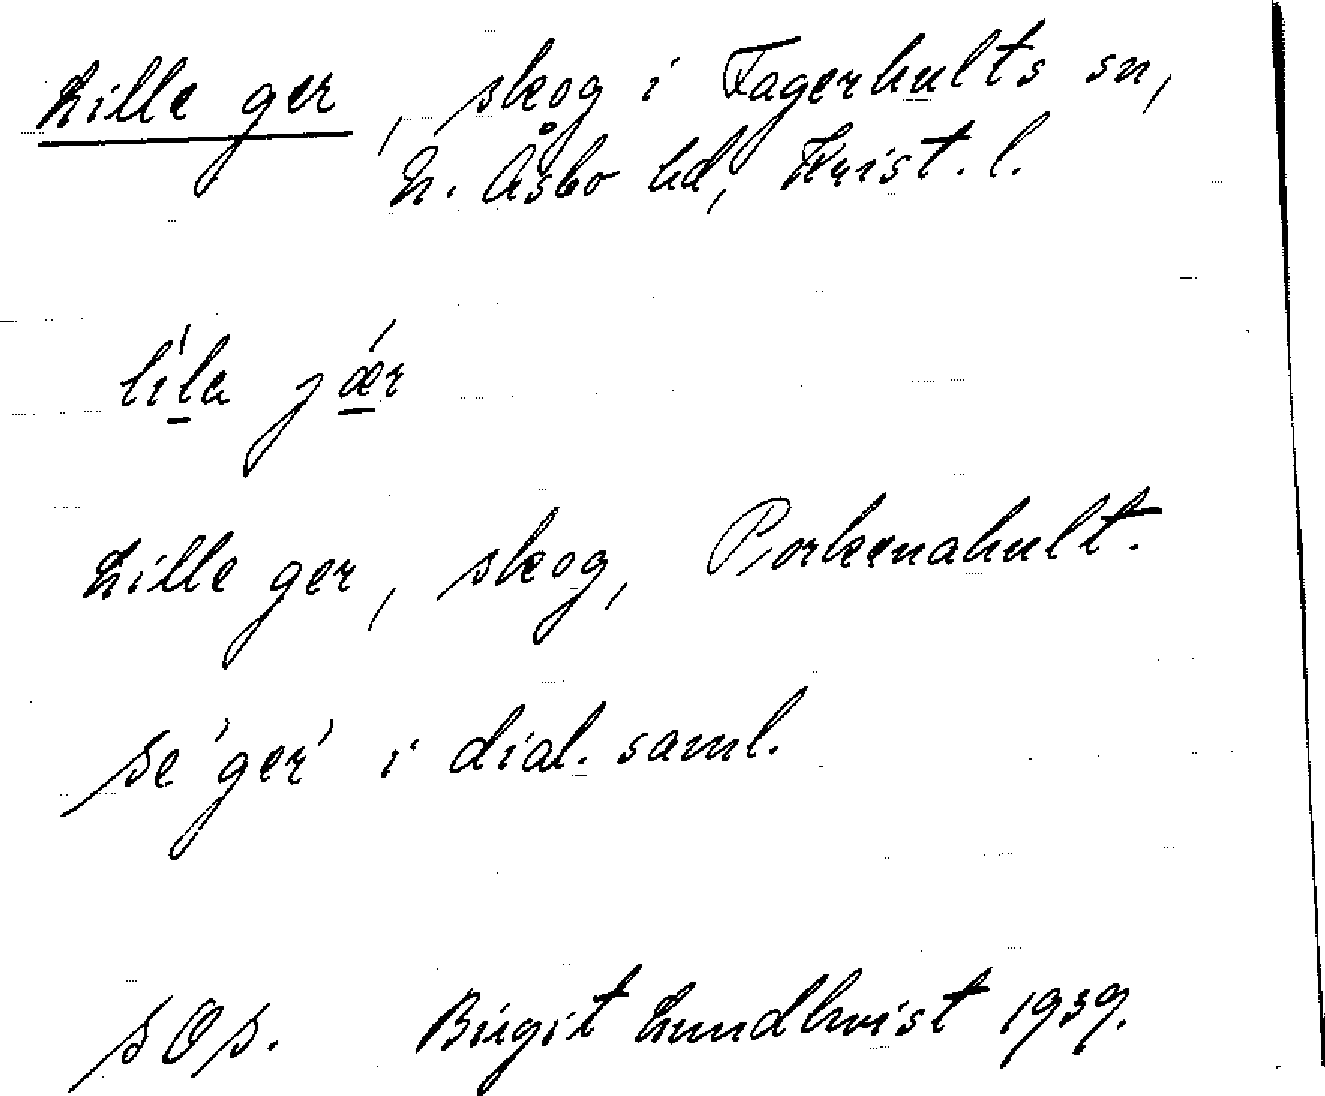 Lille ger, skog i Fagerhults sn,
N. Åsbo hd, Krist. l.
líla jǽr
Lille ger, skog, Porkenahult.
Se 'ger' i dial. saml.
S O S. Birgit Lundkvist 1939.